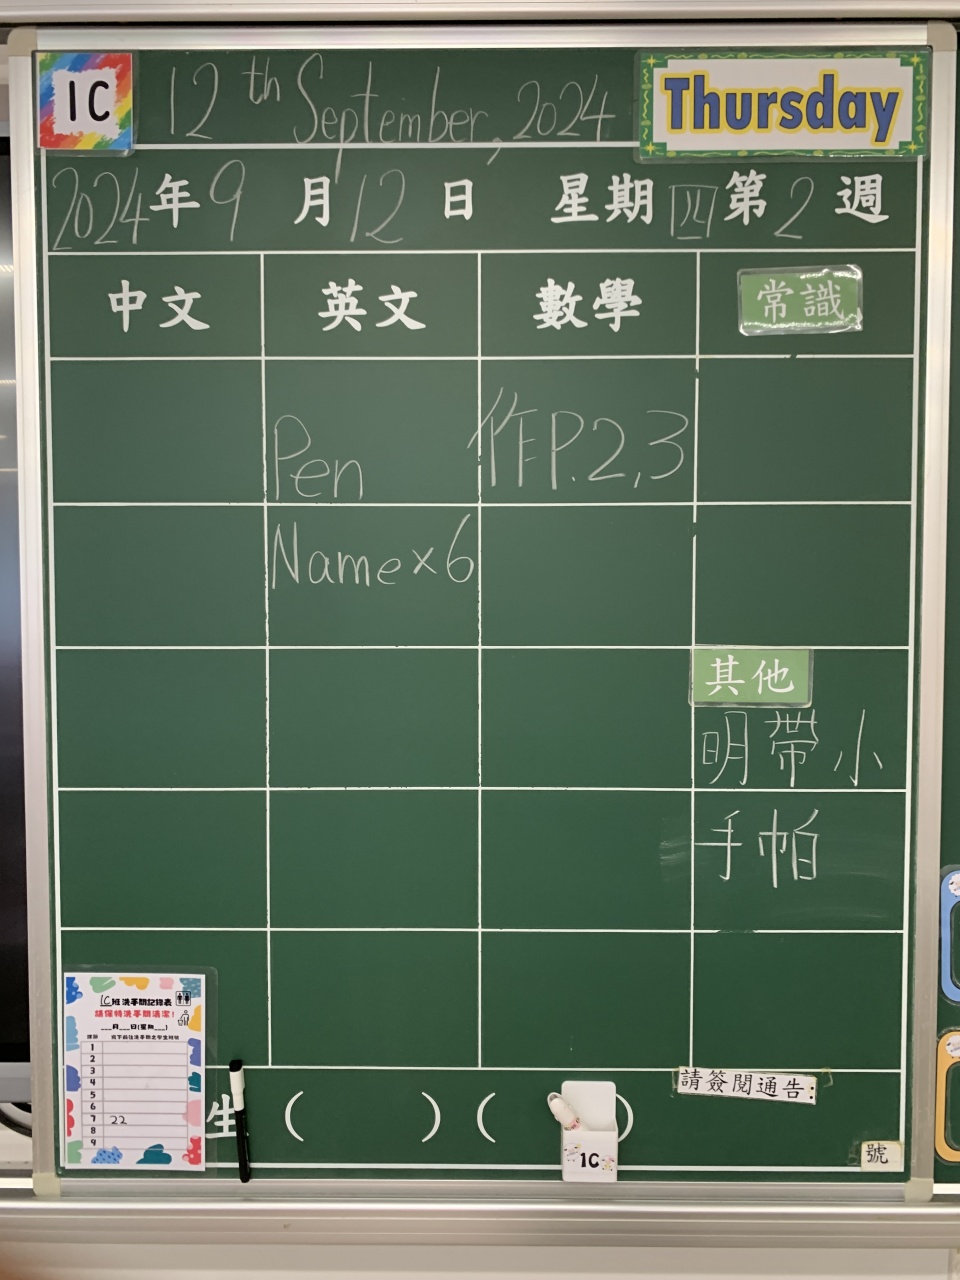 1C 12th September, 2024 Thursday
2024年9月12日 星期四 第2週
中文 英文 數學 常識
Pen 作P.2,3
Name×6
其他
明帶小
手帕
1C班洗手間記錄表
請保持洗手間清潔!
___月___日(星期___)
1
2
3
4
5
6
7 22
8
9
生 ( ) ( )
請簽閱通告:
1C
號